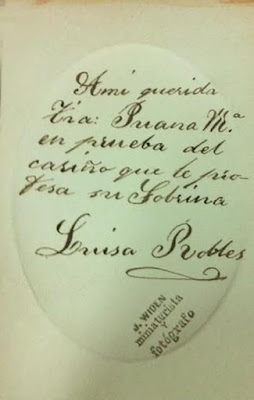 A mi querida
Tia: Juana Mª
en prueba del
cariño que le pro-
fesa su Sobrina
Luisa Robles
J. WIDEN
miniaturista
Y
fotógrafo